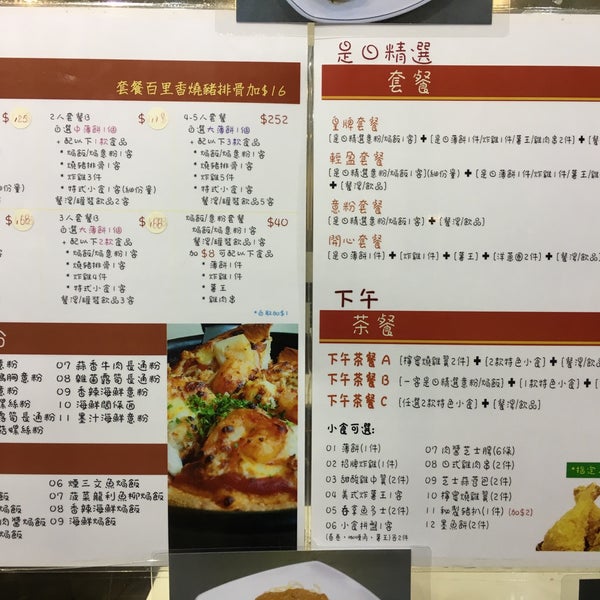 套餐百里香燒豬排骨加$16
$125
2人套餐B
$178
自選中薄餅1個
+配以下1款食品
* 焗飯/焗意粉1客
* 燒豬排骨1客
* 炸雞3件
* 特式小食1客(細份量)
餐湯/罐裝飲品2客
4-5人套餐
$252
自選大薄餅1個
+配以下3款食品
* 焗飯/焗意粉1客
* 燒豬排骨1客
* 炸雞5件
* 特式小食1客
餐湯/罐裝飲品5客
$168
3人套餐B
$188
自選大薄餅1個
+配以下2款食品
* 焗飯/焗意粉1客
* 燒豬排骨1客
* 炸雞4件
* 特式小食1客
餐湯/罐裝飲品3客
焗飯/意粉套餐
$40
焗飯/焗意粉1客
餐湯/罐裝飲品1客
加$8可配以下食品
* 薄餅1件
* 炸雞1件
* 薯王
* 雞肉串
*自取加$1
粉
意粉
鴨胸意粉
意粉
螺絲粉
露筍長通粉
菇螺絲粉
07 蒜香牛肉長通粉
08 雜菌露筍長通粉
09 香辣海鮮意粉
10 海鮮闊條面
11 墨汁海鮮意粉
焗飯
焗飯
肉醬焗飯
焗飯
06 煙三文魚焗飯
07 菠菜龍利魚柳焗飯
08 香辣海鮮焗飯
09 海鮮焗飯
是日精選
套餐
皇牌套餐
[是日精選意粉/焗飯1客]+[是日薄餅1件/炸雞1件/薯王/雞肉串2件]+[餐
輕盈套餐
[是日精選意粉/焗飯1客](細份量)+[是日薄餅1件/炸雞1件/薯王/雞
+[餐湯/飲品]
意粉套餐
[是日精選意粉/焗飯1客]+[餐湯/飲品]
開心套餐
[是日薄餅1件]+[炸雞1件]+[薯王]+[洋蔥圈2件]+[餐湯/飲品]
下午
茶餐
下午茶餐 A [檸蜜燒雞翼2件]+[2款特色小食]+[餐湯/飲
下午茶餐 B [一客是日精選意粉/焗飯]+[1款特色小食]+[
下午茶餐 C [任選2款特色小食]+[餐湯/飲品]
小食可選:
01 薄餅(1件)
02 招牌炸雞(1件)
03 甜酸雞中翼(2件)
04 美式炸薯王1客
05 吞拿魚多士(2件)
06 小食拼盤1客
(春卷、咖喱角、薯王)各2件
07 肉醬芝士腸(6條)
08 日式雞肉串(2件)
09 芝士蒜蓉包(2件)
10 檸蜜燒雞翼(2件)
11 秘製豬扒(1件) (加$2)
12 墨魚餅(2件)
*指定